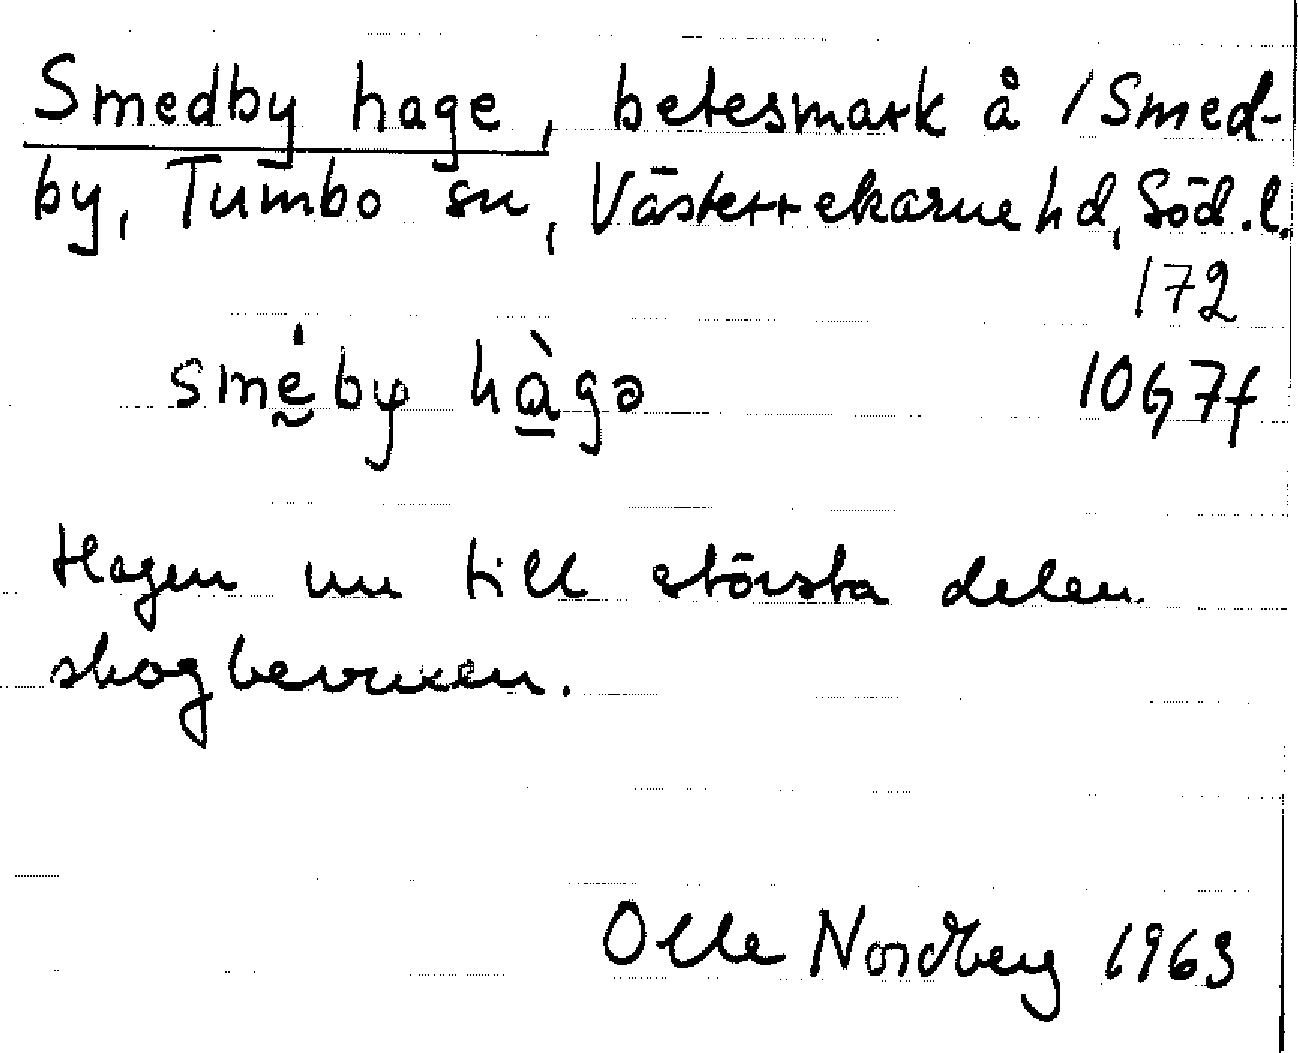 Smedby hage, betesmark å /Smed-
by, Tumbo sn, Västerrekarne hd, Söd.l.
172
smḛ́by hà̱gə 10G7f
Hagen nu till största delen
skogbevuxen.
Olle Nordberg 1963